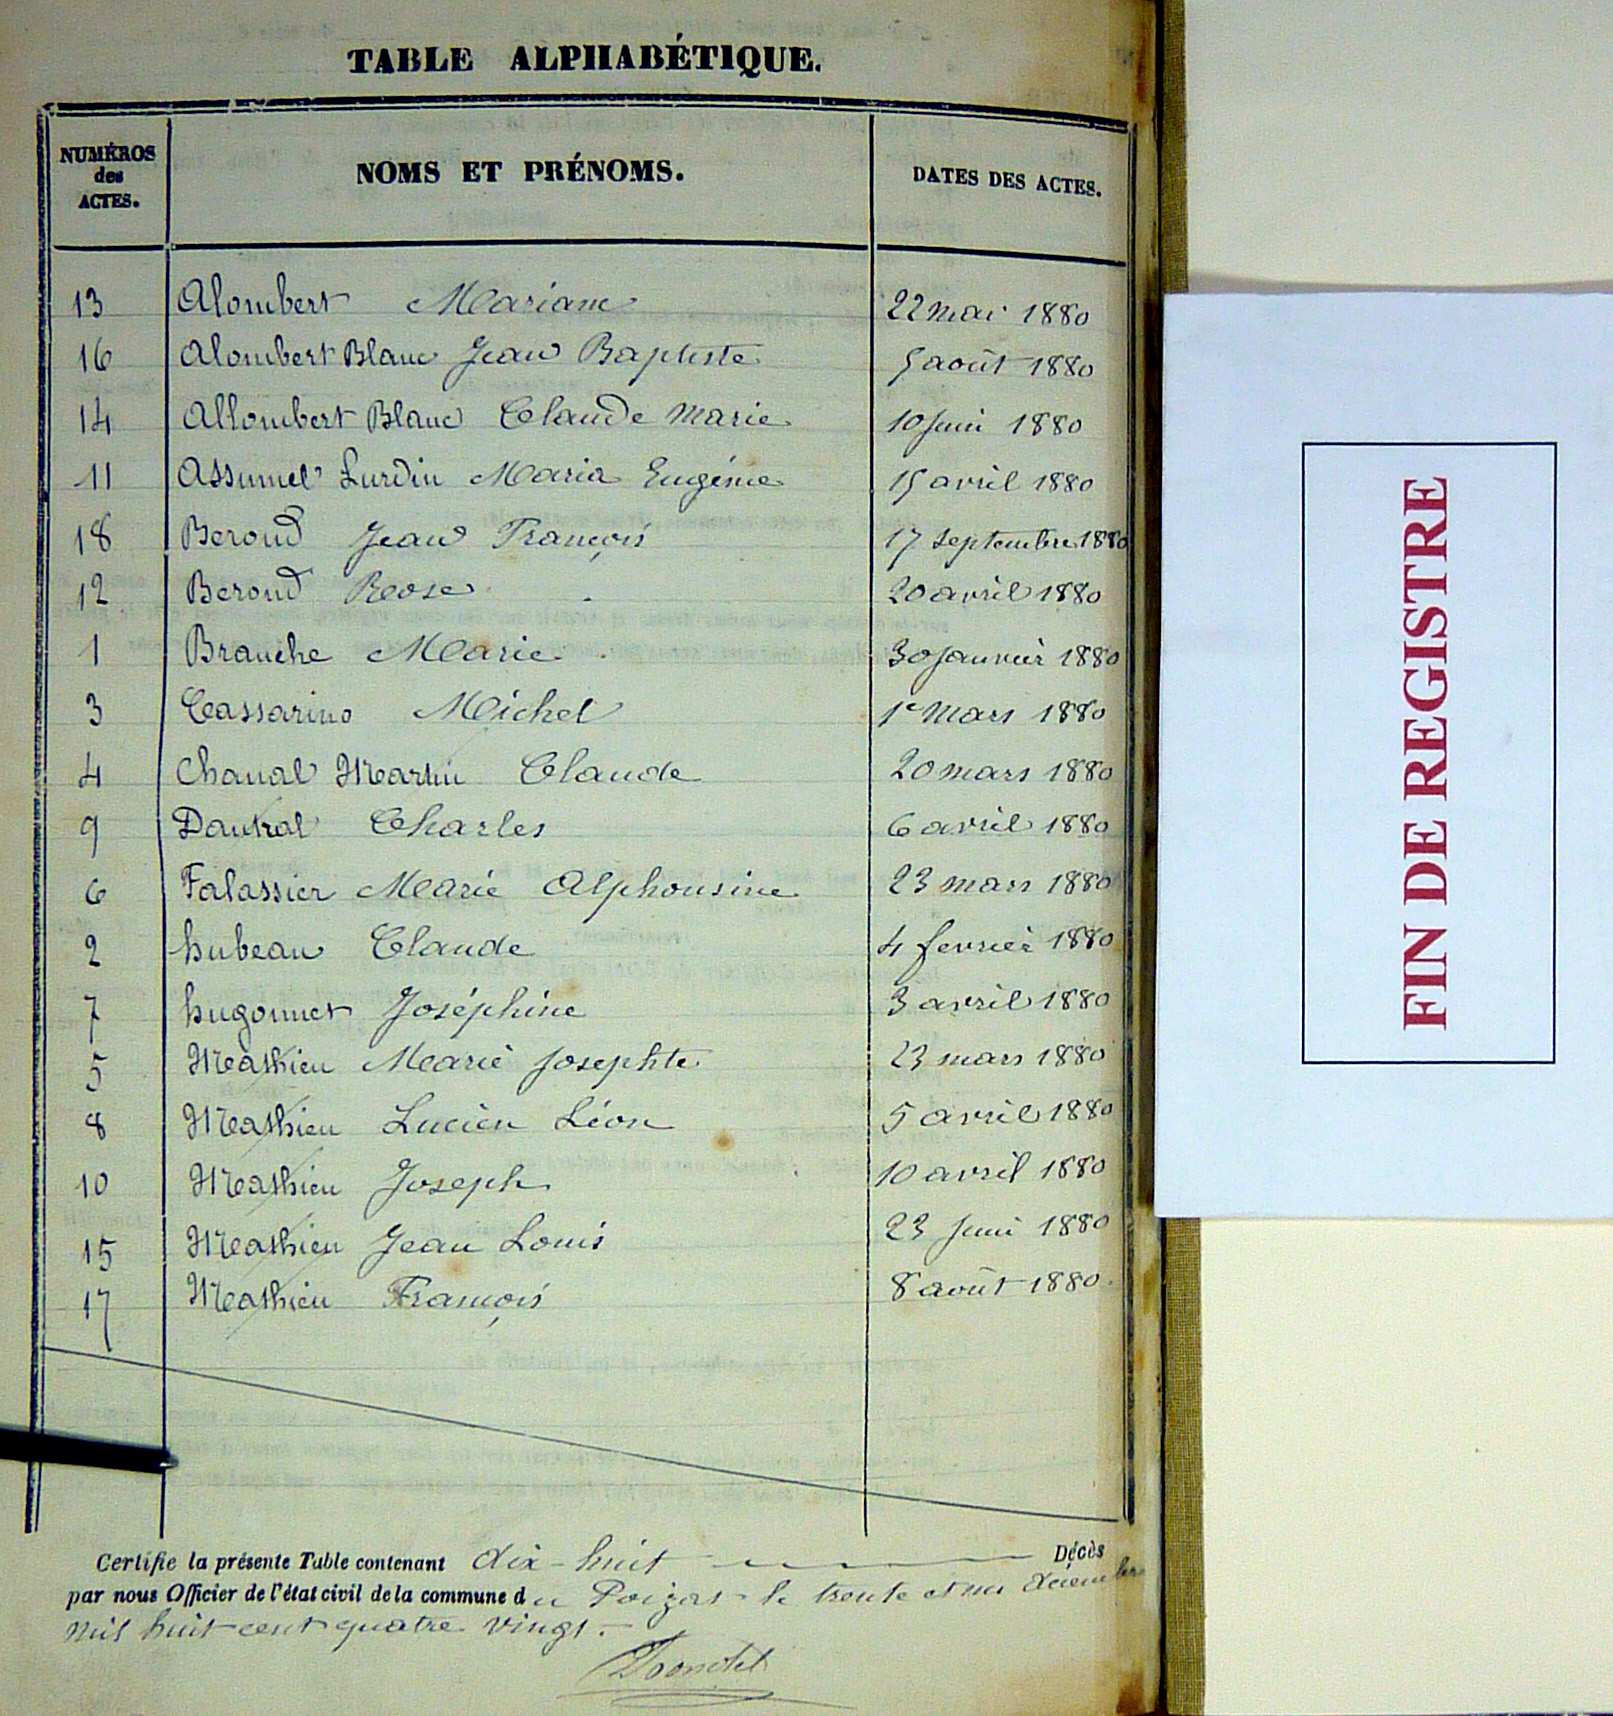 TABLE ALPHABÉTIQUE.
NUMÉROS des ACTES. NOMS ET PRÉNOMS. DATES DES ACTES.
13 Alombert Mariane 22 mai 1880
16 Alombert Blanc Jean Baptiste 5 août 1880
14 Allombert Blanc Claude Marie 10 Juin 1880
11 Assumel Lurdin Maria Eugénie 15 avril 1880
18 Beroud Jean François 17 septembre 1880
12 Beroud Rose 20 avril 1880
1 Branche Marie 30 Janvier 1880
3 Cassarino Michel 1er Mars 1880
4 Chanal Martin Claude 20 mars 1880
9 Dautral Charles 6 avril 1880
6 Falassier Marie Alphonsine 23 mars 1880
2 hubeau Claude 4 fevrier 1880
7 hugonnet Joséphine 3 avril 1880
5 Mathieu Marie Josephte 23 mars 1880
8 Mathieu Lucien Léon 5 avril 1880
10 Mathieu Joseph 10 avril 1880
15 Mathieu Jean Louis 23 Juin 1880
17 Mathieu François 8 août 1880
Certifie la présente Table contenant dix-huit Décès
par nous Officier de l'état civil de la commune du Poizat le trente et un décembre
mil huit cent quatre vingt.
FIN DE REGISTRE